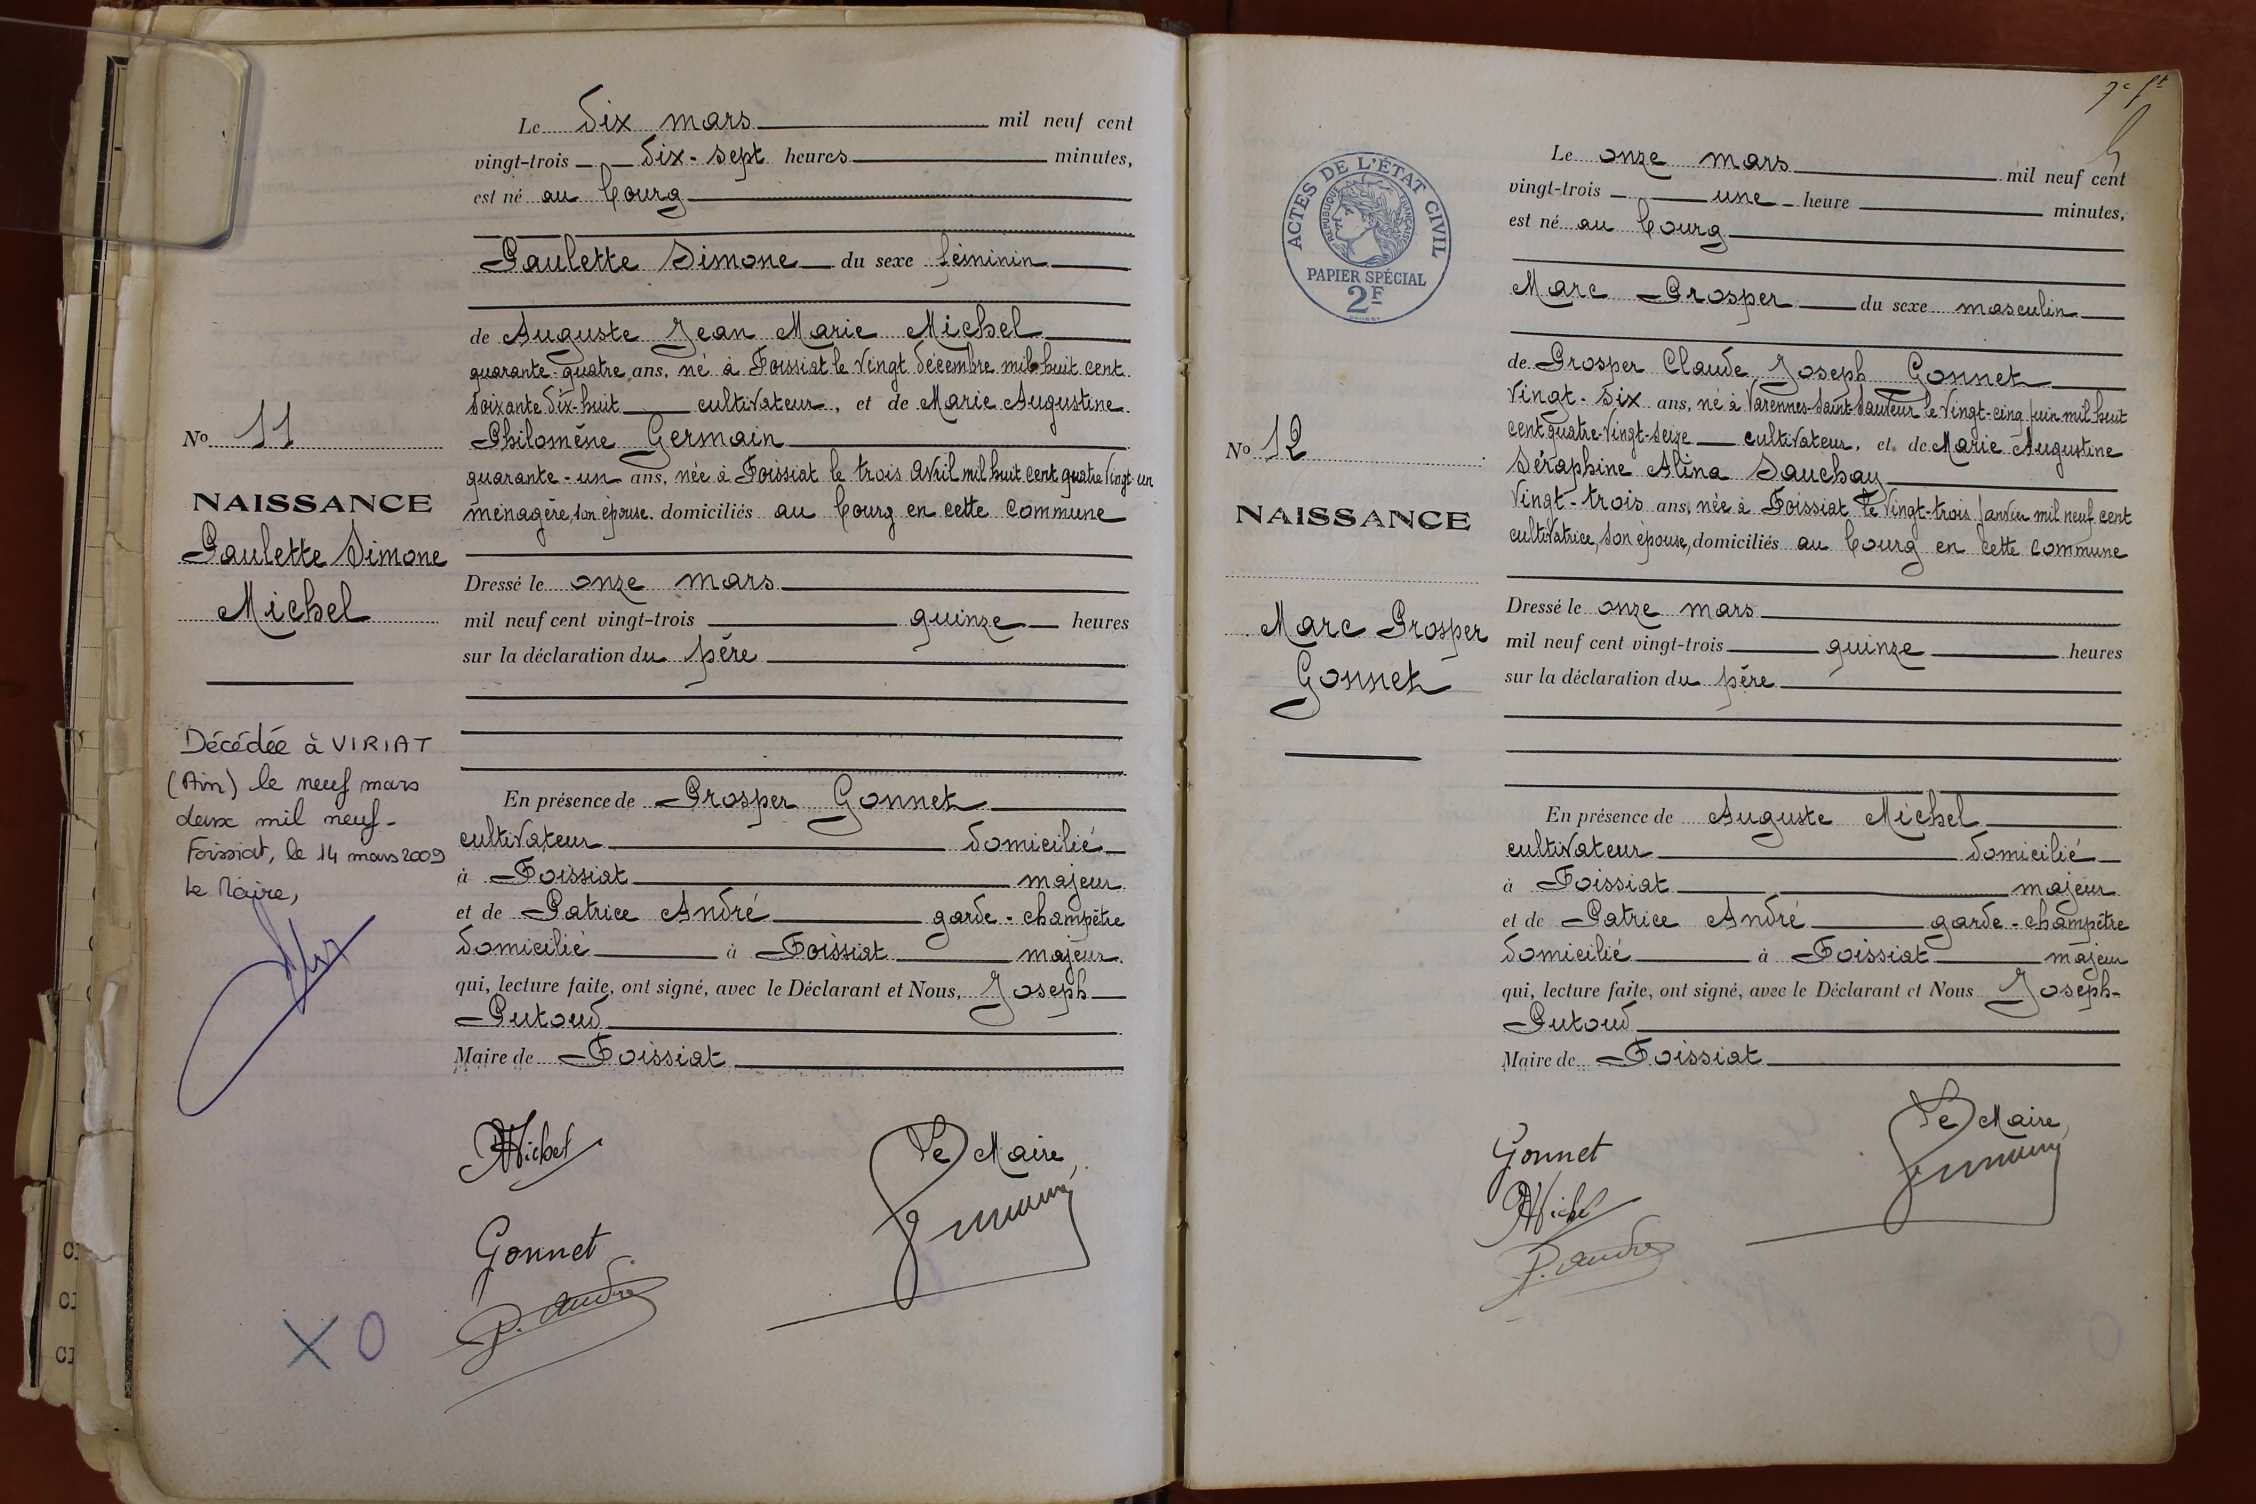 Le dix mars mil neuf cent
vingt-trois dix-sept heures minutes,
est né au bourg
Paulette Simone du sexe féminin
de Auguste Jean Marie Michel
quarante-quatre ans, né à Foissiat le vingt décembre mil huit cent
soixante dix-huit cultivateur, et de Marie Augustine
Philomène Germain
quarante-un ans, née à Foissiat le trois avril mil huit cent quatre vingt un
ménagère, son épouse. domiciliés au bourg en cette commune
Dressé le onze mars
mil neuf cent vingt-trois quinze heures
sur la déclaration du père
En présence de Prosper Gonnet
cultivateur domicilié
à Foissiat majeur
et de Patrice André garde-champêtre
domicilié à Foissiat majeur
qui, lecture faite, ont signé, avec le Déclarant et Nous, Joseph
Putoud
Maire de Foissiat
AMichel
Le Maire,
Gonnet
P. André
No 11
NAISSANCE
Paulette Simone
Michel
Décédée à VIRIAT
(Ain) le neuf mars
deux mil neuf-
Foissiat, le 14 mars 2009
Le Maire,
X O
7e ft
ACTES DE L'ÉTAT CIVIL
RÉPUBLIQUE FRANÇAISE
PAPIER SPÉCIAL
2F
Le onze mars mil neuf cent
vingt-trois une heure minutes,
est né au bourg
Marc Prosper du sexe masculin
de Prosper Claude Joseph Gonnet
vingt-six ans, né à Varennes-Saint-Sauveur le vingt-cinq juin mil huit
cent quatre-vingt-seize cultivateur, et de Marie Augustine
Séraphine Alina Sauchay
vingt-trois ans, née à Foissiat le vingt-trois janvier mil neuf cent
cultivatrice, son épouse, domiciliés au bourg en cette commune
Dressé le onze mars
mil neuf cent vingt-trois quinze heures
sur la déclaration du père
En présence de Auguste Michel
cultivateur domicilié
à Foissiat majeur
et de Patrice André garde-champêtre
domicilié à Foissiat majeur
qui, lecture faite, ont signé, avec le Déclarant et Nous Joseph-
Putoud
Maire de Foissiat
Le Maire,
Gonnet
AMichel
P. André
No 12
NAISSANCE
Marc Prosper
Gonnet